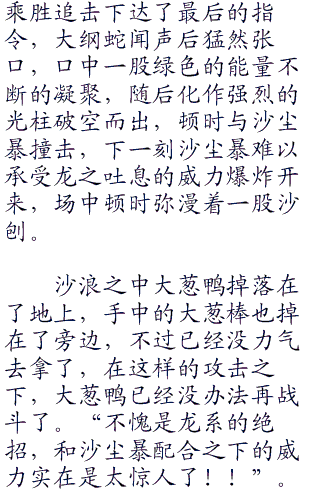 乘胜追击下达了最后的指
令，大纲蛇闻声后猛然张
口，口中一股绿色的能量不
断的凝聚，随后化作强烈的
光柱破空而出，顿时与沙尘
暴撞击，下一刻沙尘暴难以
承受龙之吐息的威力爆炸开
来，场中顿时弥漫着一股沙
刨。
沙浪之中大葱鸭掉落在
了地上，手中的大葱棒也掉
在了旁边，不过已经没力气
去拿了，在这样的攻击之
下，大葱鸭已经没办法再战
斗了。“不愧是龙系的绝
招，和沙尘暴配合之下的威
力实在是太惊人了！！”。